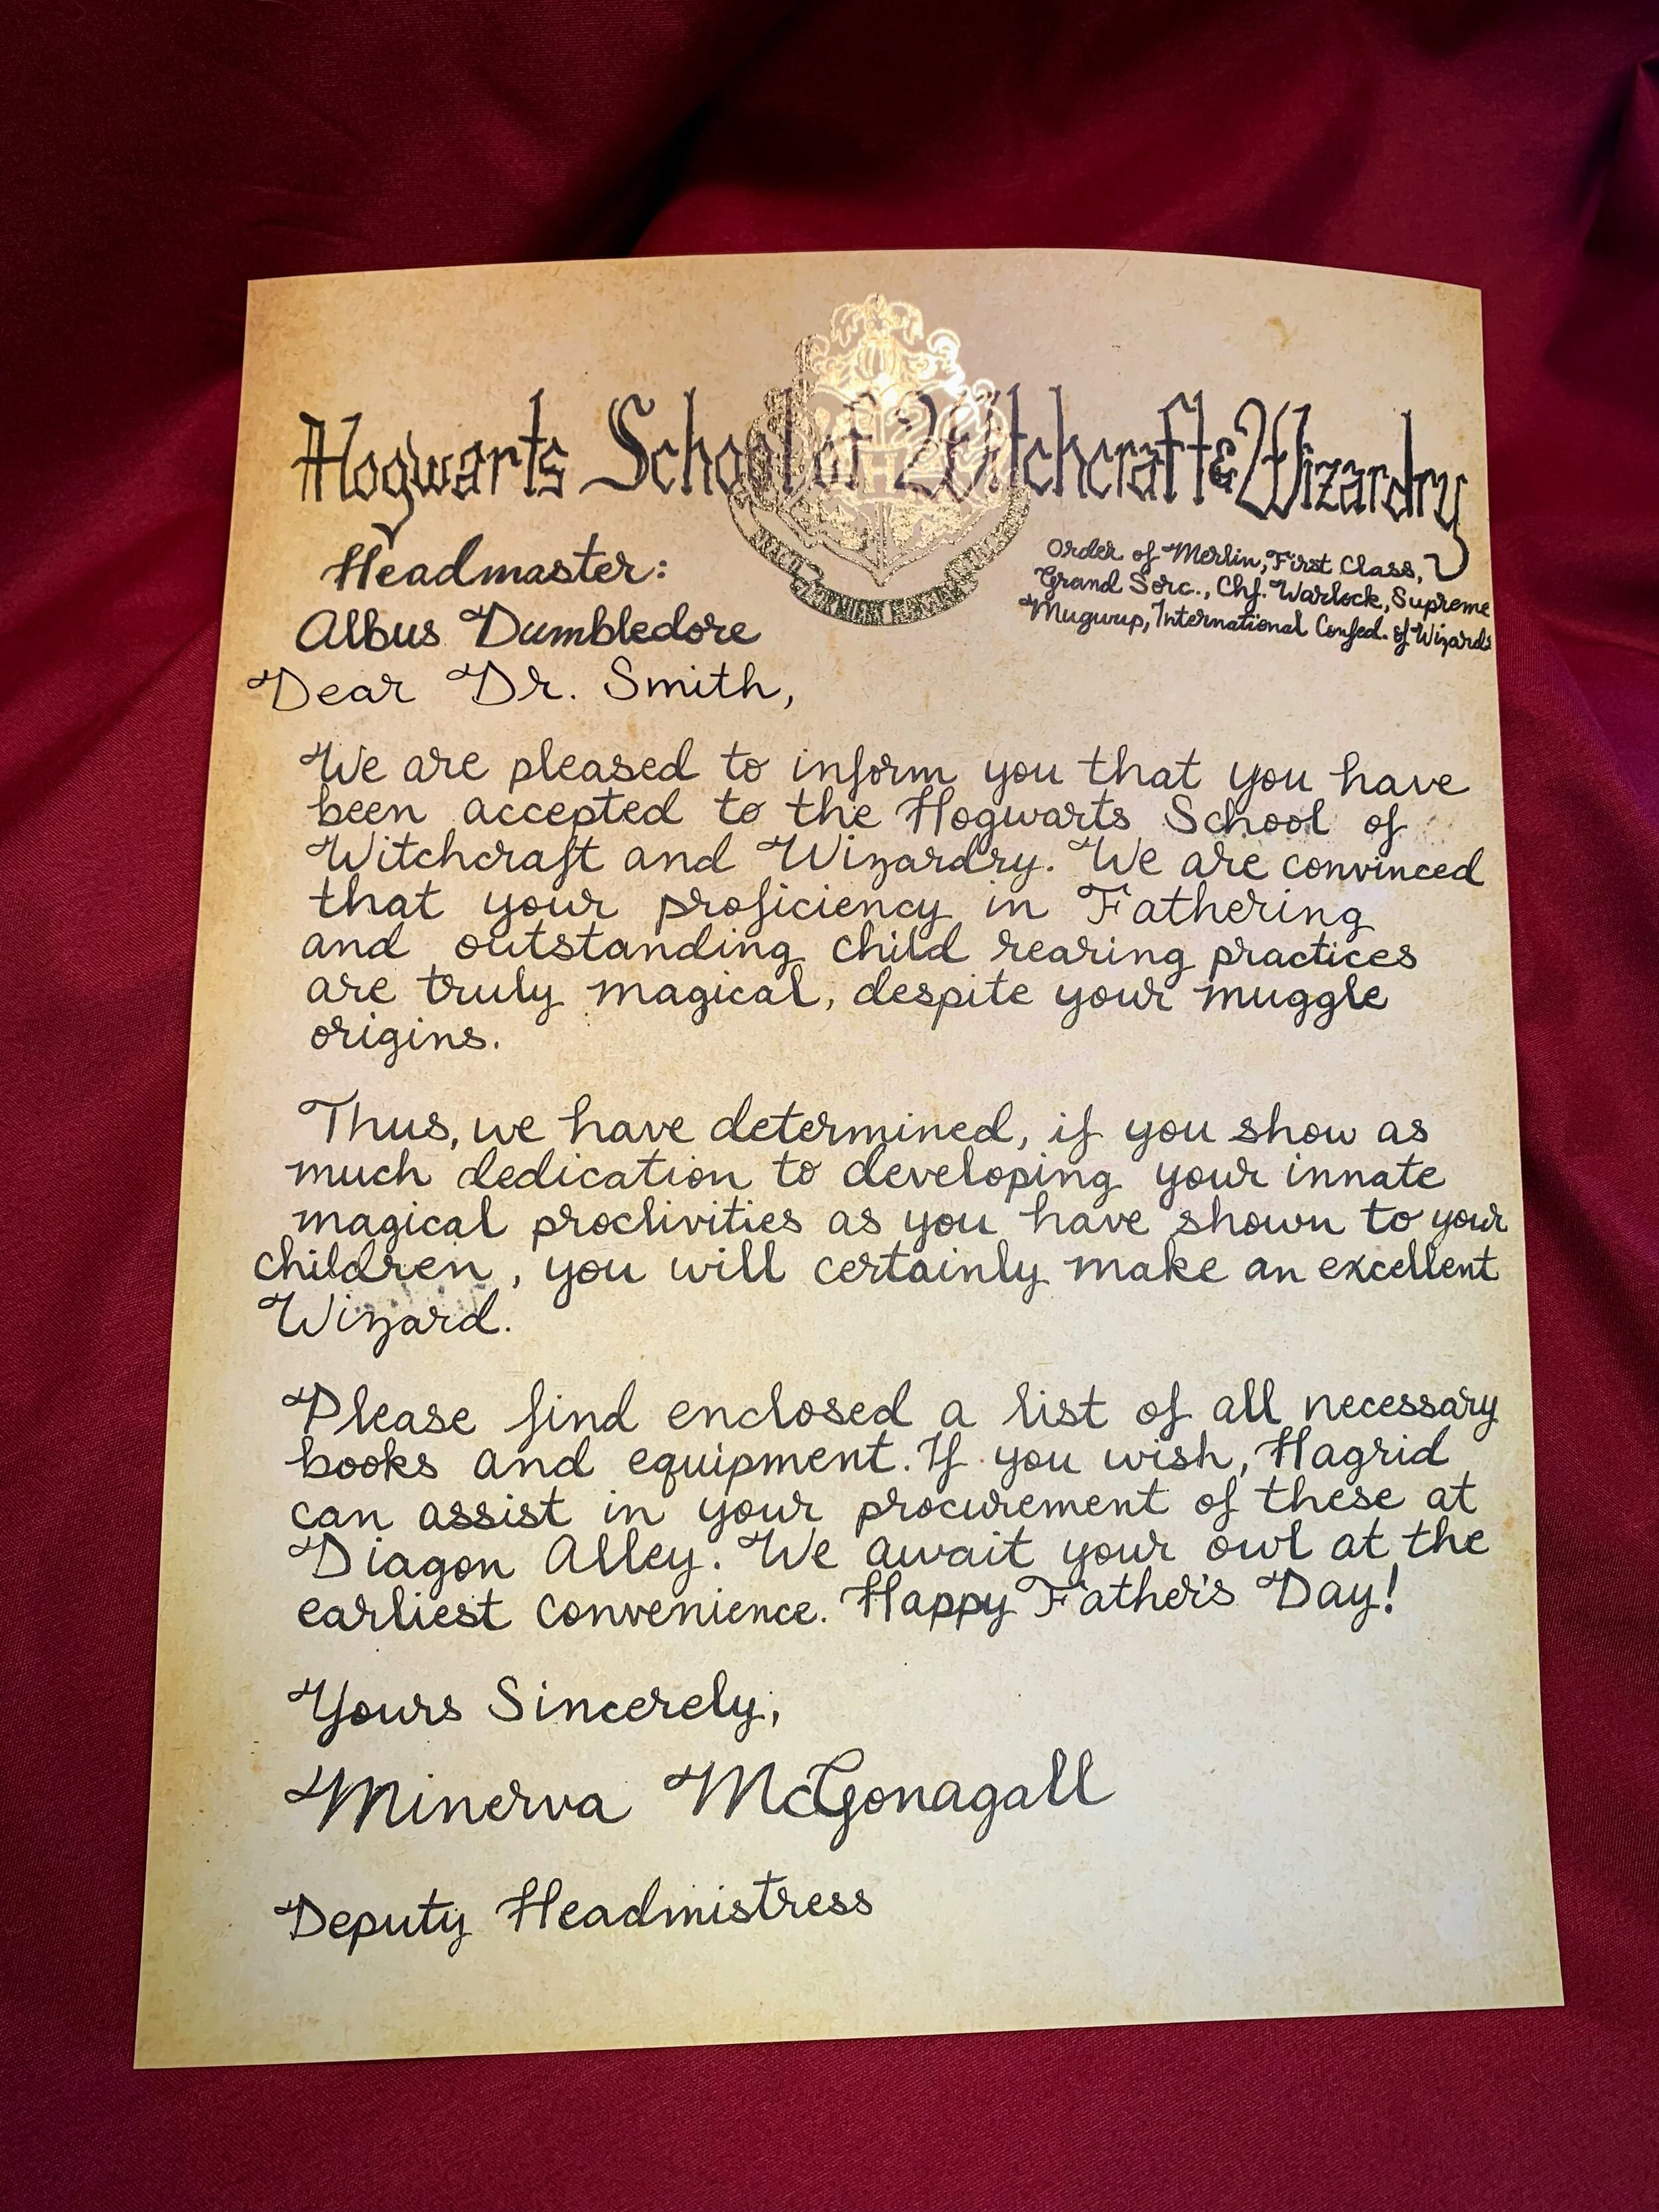 Hogwarts School of Witchcraft & Wizardry
Headmaster:
Albus Dumbledore
Order of Merlin, First Class,
Grand Sorc., Chf. Warlock, Supreme
Mugwup, International Confed. of Wizards
Dear Dr. Smith,
We are pleased to inform you that you have
been accepted to the Hogwarts School of
Witchcraft and Wizardry. We are convinced
that your proficiency in Fathering
and outstanding child rearing practices
are truly magical, despite your muggle
origins.
Thus, we have determined, if you show as
much dedication to developing your innate
magical proclivities as you have shown to your
children, you will certainly make an excellent
Wizard.
Please find enclosed a list of all necessary
books and equipment. If you wish, Hagrid
can assist in your procurement of these at
Diagon Alley. We await your owl at the
earliest convenience. Happy Father's Day!
Yours Sincerely,
Minerva McGonagall
Deputy Headmistress